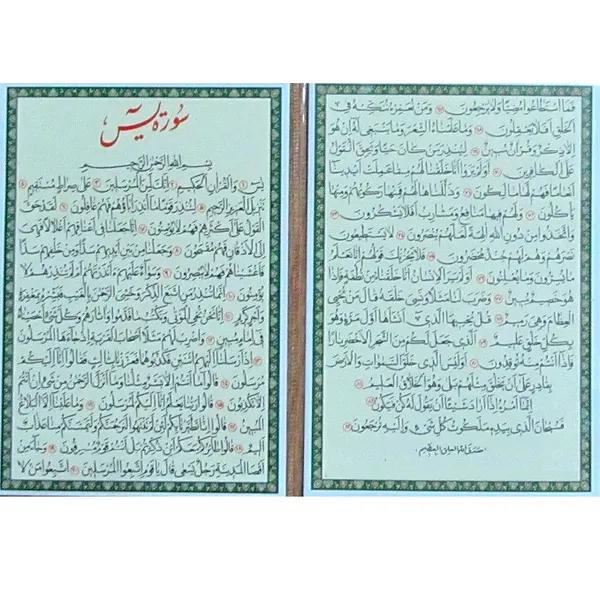 سورة يس
بسم الله الرحمن الرحيم
يس ١ والقرآن الحكيم ٢ إنك لمن المرسلين ٣ على صراط مستقيم ٤
تنزيل العزيز الرحيم ٥ لتنذر قوما ما أنذر آباؤهم فهم غافلون ٦ لقد حق
القول على أكثرهم فهم لا يؤمنون ٧ إنا جعلنا في أعناقهم أغلالا فهي
إلى الأذقان فهم مقمحون ٨ وجعلنا من بين أيديهم سدا ومن خلفهم سدا
فأغشيناهم فهم لا يبصرون ٩ وسواء عليهم أأنذرتهم أم لم تنذرهم لا
يؤمنون ١٠ إنما تنذر من اتبع الذكر وخشي الرحمن بالغيب فبشره بمغفرة
وأجر كريم ١١ إنا نحن نحيي الموتى ونكتب ما قدموا وآثارهم وكل شيء أحصيناه
في إمام مبين ١٢ واضرب لهم مثلا أصحاب القرية إذ جاءها المرسلون
١٣ إذ أرسلنا إليهم اثنين فكذبوهما فعززنا بثالث فقالوا إنا إليكم
مرسلون ١٤ قالوا ما أنتم إلا بشر مثلنا وما أنزل الرحمن من شيء إن أنتم
إلا تكذبون ١٥ قالوا ربنا يعلم إنا إليكم لمرسلون ١٦ وما علينا إلا البلاغ
المبين ١٧ قالوا إنا تطيرنا بكم لئن لم تنتهوا لنرجمنكم وليمسنكم منا عذاب
أليم ١٨ قالوا طائركم معكم أئن ذكرتم بل أنتم قوم مسرفون ١٩ وجاء من
أقصا المدينة رجل يسعى قال يا قوم اتبعوا المرسلين ٢٠ اتبعوا من لا
فما استطاعوا مضيا ولا يرجعون ٦٧ ومن نعمره ننكسه في
الخلق أفلا يعقلون ٦٨ وما علمناه الشعر وما ينبغي له إن هو
إلا ذكر وقرآن مبين ٦٩ لينذر من كان حيا ويحق القول
على الكافرين ٧٠ أولم يروا أنا خلقنا لهم مما عملت أيدينا
أنعاما فهم لها مالكون ٧١ وذللناها لهم فمنها ركوبهم ومنها
يأكلون ٧٢ ولهم فيها منافع ومشارب أفلا يشكرون ٧٣
واتخذوا من دون الله آلهة لعلهم ينصرون ٧٤ لا يستطيعون
نصرهم وهم لهم جند محضرون ٧٥ فلا يحزنك قولهم إنا نعلم
ما يسرون وما يعلنون ٧٦ أولم ير الإنسان أنا خلقناه من نطفة فإذا
هو خصيم مبين ٧٧ وضرب لنا مثلا ونسي خلقه قال من يحيي
العظام وهي رميم ٧٨ قل يحييها الذي أنشأها أول مرة وهو
بكل خلق عليم ٧٩ الذي جعل لكم من الشجر الأخضر نارا
فإذا أنتم منه توقدون ٨٠ أوليس الذي خلق السماوات والأرض
بقادر على أن يخلق مثلهم بلى وهو الخلاق العليم ٨١
إنما أمره إذا أراد شيئا أن يقول له كن فيكون ٨٢
فسبحان الذي بيده ملكوت كل شيء وإليه ترجعون ٨٣
صدق الله العلي العظيم